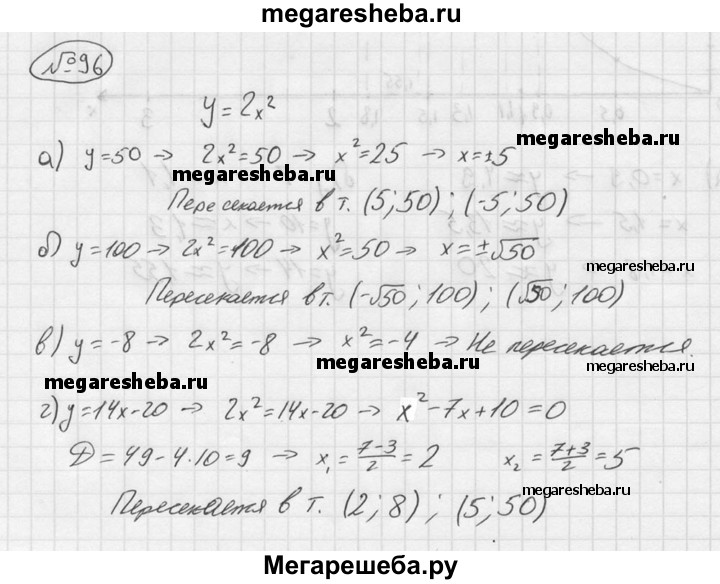 megaresheba.ru
№96
y=2x²
megaresheba.ru
а) y=50 → 2x²=50 → x²=25 → x=±5
megaresheba.ru
Пересекается в т. (5; 50) ; (-5; 50)
б) y=100 → 2x²=100 → x²=50 → x=±√50
megaresheba.ru
Пересекается в т. (-√50; 100) ; (√50; 100)
в) y=-8 → 2x²=-8 → x²=-4 → Не пересекается.
megaresheba.ru
megaresheba.ru
megaresheba.ru
г) y=14x-20 → 2x²=14x-20 → x²-7x+10=0
D=49-4·10=9 → x₁=(7-3)/2=2 x₂=(7+3)/2=5
megaresheba.ru
Пересекается в т. (2; 8) ; (5; 50)
Мегарешеба.ру